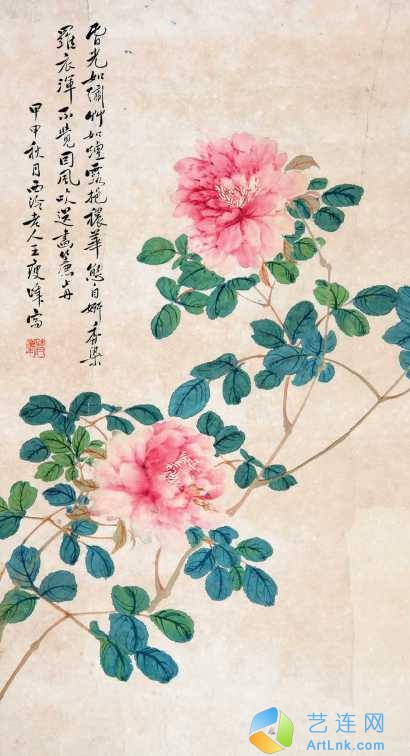 春光如繡艸如煙露挹穠華態自妍香染
羅衣渾不覺因風吹送畫簾前
甲申秋月西泠老人王瘦峰寫
艺连网
ArtLnk.com